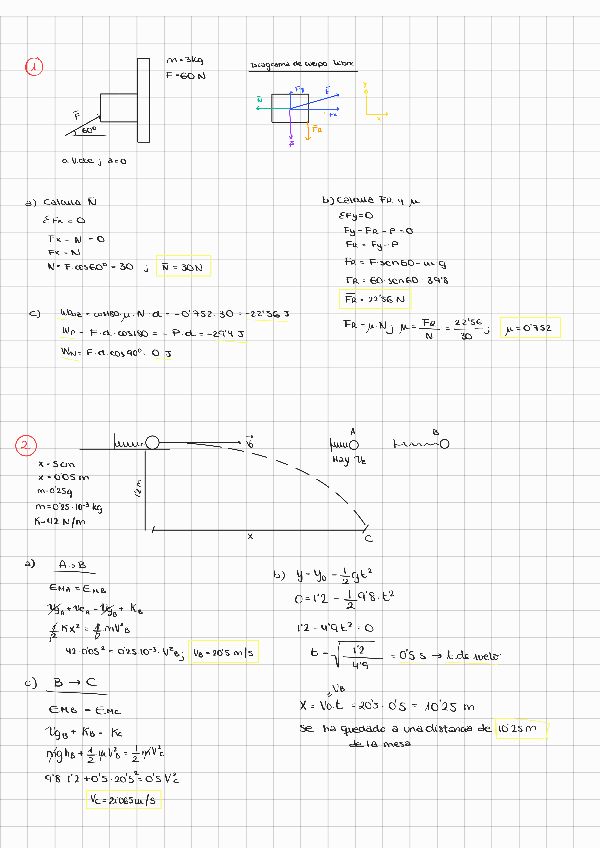 1
m = 3kg
F = 60 N
Diagrama de cuerpo libre
F
60º
Fy
F
N
Fx
P
FR
y
x
a. V.cte ; a=0
a) Calcula N
ΣFx = 0
Fx - N = 0
Fx = N
N = F. cos60º = 30 ; N = 30N
b) Calcula FR y μ
ΣFy=0
Fy - FR - P = 0
FR = Fy - P
FR = F·sen60 - m·g
FR = 60·sen60 - 3·9'8
FR = 22'56 N
FR = μ·N ; μ = FR/N = 22'56/30 ; μ = 0'752
c) WRoz = cos180·μ·N·d = -0'752·30 = -22'56 J
WP = F·d·cos180 = -P·d = -29'4 J
WN = F·d·cos90º = 0 J
2
x = 5cm
x = 0'05 m
m = 0'25g
m = 0'25·10⁻³ kg
K = 42 N/m
v
A
B
Hay VE
1'2m
x
C
a) A → B
EMA = EMB
VgA + VeA = VgB + KB
1/2 Kx² = 1/2 mV²B
42·0'05² = 0'25·10⁻³·V²B ; VB = 20'5 m/s
b) y = y0 - 1/2 gt²
0 = 1'2 - 1/2 9'8·t²
1'2 - 4'9t² = 0
t = √1'2/4'9 = 0'5 s → t. de vuelo
VB
x = V0·t = 20'5·0'5 = 10'25 m
Se ha quedado a una distancia de 10'25m
de la mesa
c) B → C
EMB = EMC
VgB + KB = KC
mghB + 1/2 mV²B = 1/2 mV²C
9'8·1'2 + 0'5·20'5² = 0'5 V²C
VC = 21'065 m/s